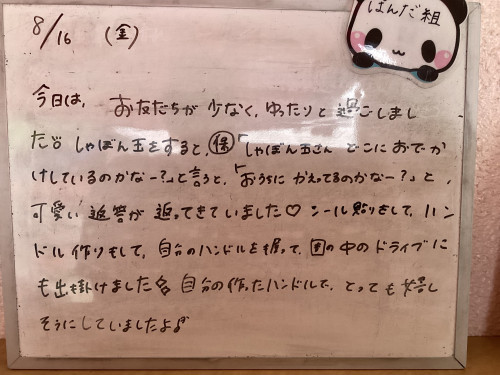 ぱんだ組
8/16 (金)
今日は、お友だちが少なく、ゆったりと過ごしまし
た♡♡ しゃぼん玉をすると、㋭「しゃぼん玉さん どこにおでか
けしているのかなー?」と言うと、「おうちに かえってるのかなー?」と、
可愛い返答が返ってきていました♡ シール貼りをして、ハン
ドル作りもして、自分のハンドルを握って、園の中のドライブに
も出掛けました 自分の作ったハンドルで、とっても嬉し
そうにしていましたよ♪